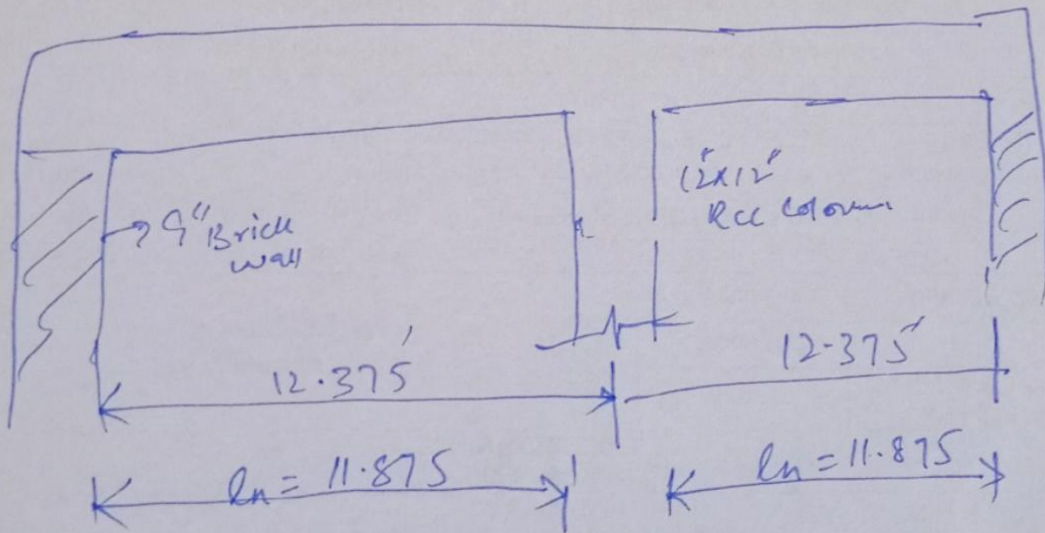 9" Brick
wall
12"x12"
RCC Column
12.375'
12.375'
ln = 11.875
ln = 11.875